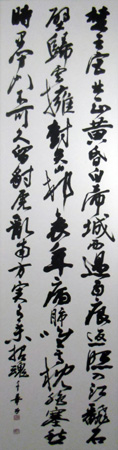 楚王宮北正黃昏白帝城西過雨痕返照入江翻石
壁歸雲擁樹失山邨衰年病肺惟高枕絕塞愁
時早閉門不可久留豺虎亂南方實有未招魂